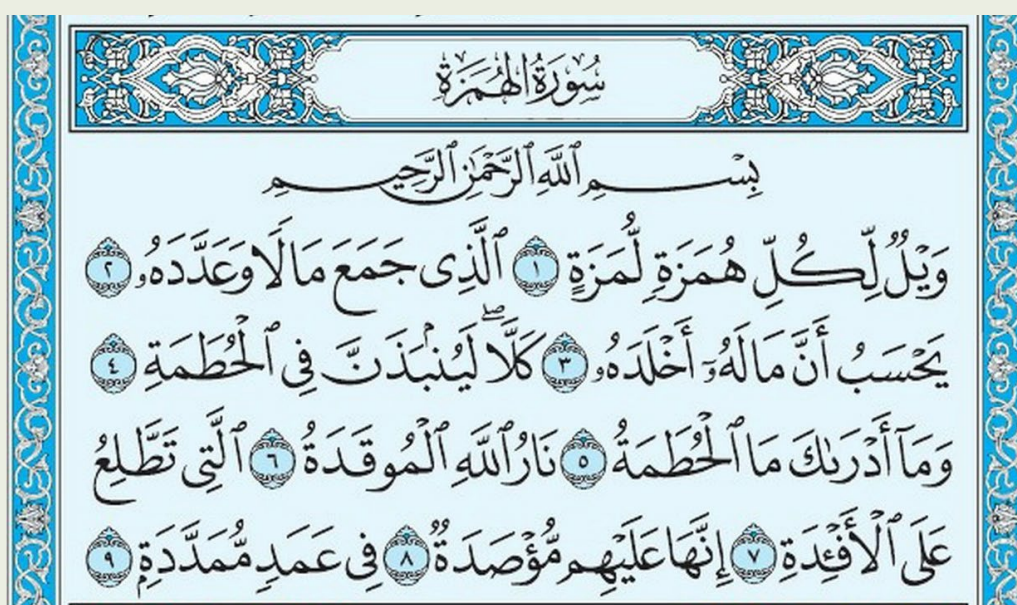 سُورَةُ الهُمَزَةِ
بِسْمِ ٱللَّهِ ٱلرَّحْمَٰنِ ٱلرَّحِيمِ
وَيْلٌ لِّكُلِّ هُمَزَةٍ لُّمَزَةٍ ١ ٱلَّذِى جَمَعَ مَالًا وَعَدَّدَهُۥ ٢
يَحْسَبُ أَنَّ مَالَهُۥٓ أَخْلَدَهُۥ ٣ كَلَّاۖ لَيُنۢبَذَنَّ فِى ٱلْحُطَمَةِ ٤
وَمَآ أَدْرَىٰكَ مَا ٱلْحُطَمَةُ ٥ نَارُ ٱللَّهِ ٱلْمُوقَدَةُ ٦ ٱلَّتِى تَطَّلِعُ
عَلَى ٱلْأَفْـِٔدَةِ ٧ إِنَّهَا عَلَيْهِم مُّؤْصَدَةٌ ٨ فِى عَمَدٍ مُّمَدَّدَةٍۭ ٩